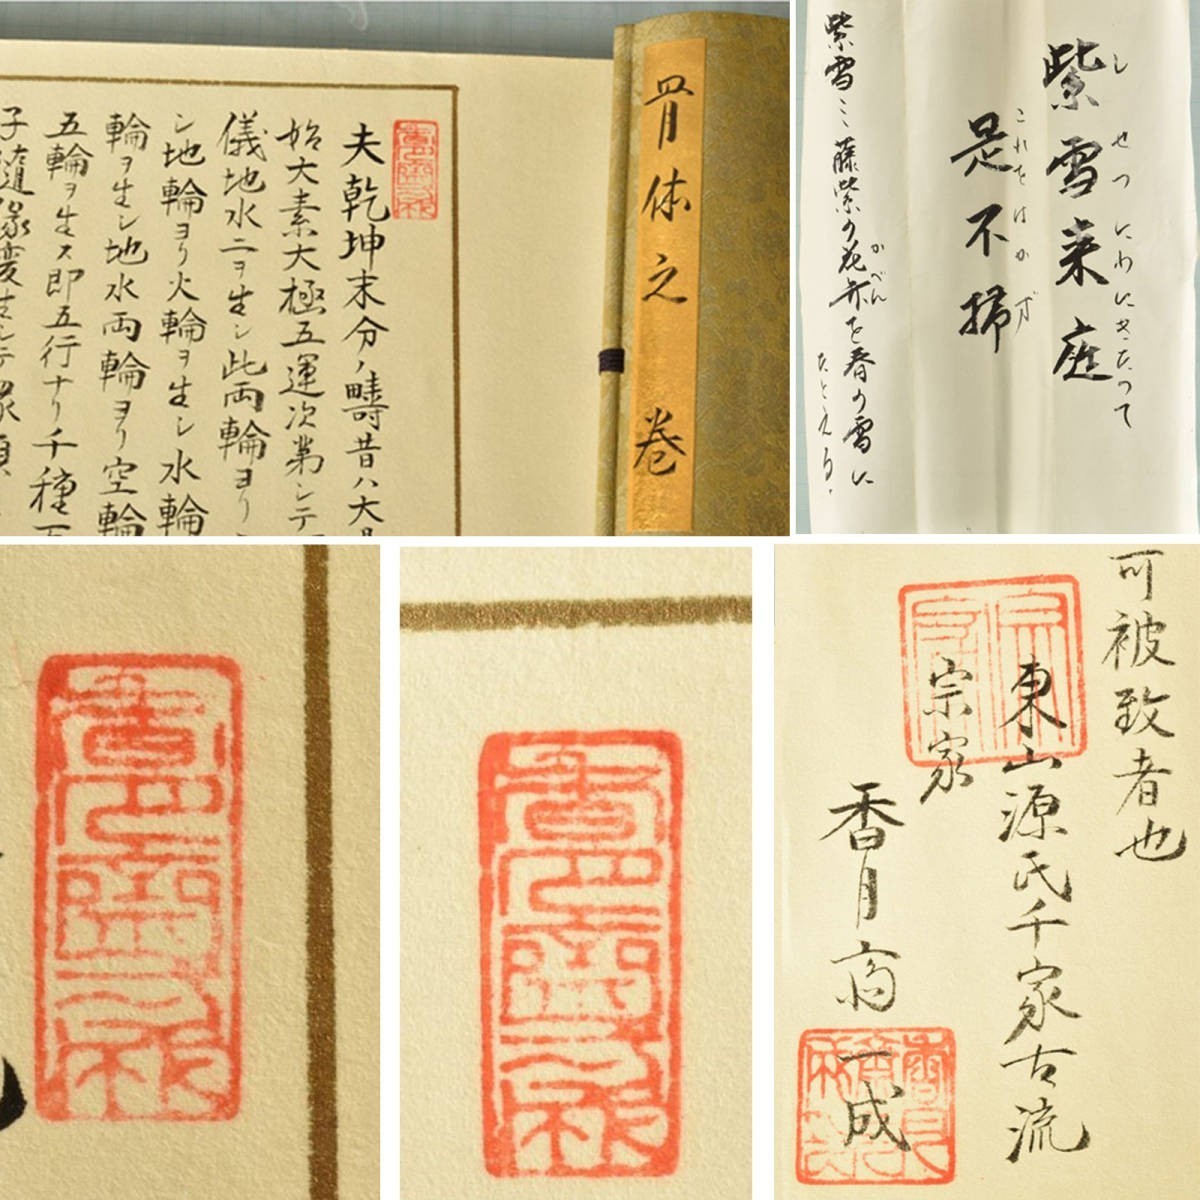 骨体之巻
夫乾坤末分ノ疇昔ハ大
始大素大極五運次第シテ
儀地水二ヲ生シ此両輪ヨリ
シ地輪ヨリ火輪ヲ生シ水輪
輪ヲ生シ地水両輪ヨリ空輪
五輪ヲ生ス即五行ナリ千種
子随縁変生シテ
紫雪来庭
しせつにわにきたって
是不掃
これをはかず
紫雪ミミ藤紫の花弁を春の雪に
かべん
たとえる、
可被致者也
東山源氏千家古流
宗家
香月斎
一成